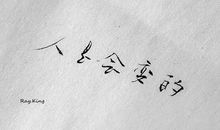 人总会变的
Ray.King